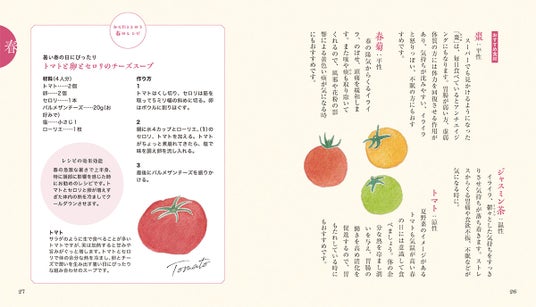 おすすめ食材
棗：平性
スーパーでも見かけるようになった
「棗」は、毎日食べているとアンチエイジ
ングにもなります。胃腸が弱い方、虚弱
体質の方には体力を回復させる作用が
あり、気持ちが沈みやすい、イライラ
と怒りっぽい、不眠の方にもおす
すめです。
春菊：平性
春の陽気からくるイライ
ラ、のぼせ、頭痛を緩和しま
す。また痰や咳も取り除いて
くれるので、風邪や花粉の影
響による黄色い痰が気になる時
にもおすすめです。
ジャスミン茶：温性
イライラ、鬱々とした気持ちをすっき
りさせ気持ちが落ち着きます。ストレ
スからくる胃痛や食欲不振、不眠などが
気になる時に。
トマト：涼性
夏野菜のイメージがある
トマトも気温が高い春
の日には意識して食
べましょう。体の余
分な熱を冷まし潤
いを与え、胃腸の
働きを高め消化を
促進するので、胃
もたれしている時に
もおすすめです。
26
春
春のレシピ
暑い春の日にぴったり
トマトと卵とセロリのチーズスープ
材料(4人分)
トマト……2個
卵……2個
セロリ……1本
パルメザンチーズ……20g(お好みで)
塩……小さじ1
ローリエ……1枚
作り方
1
トマトはくし切り、セロリは筋を
取って5ミリ幅の斜めに切る。卵
はボウルに割りほぐす。
2
鍋に水4カップとローリエ、(1)の
セロリ、トマトを加える。トマト
がちょっと煮崩れてきたら、塩で
味を調え卵を流し入れる。
3
最後にパルメザンチーズを振りか
ける。
レシピの効果効能
春の急激な暑さで上半身、
特に頭部に影響を感じた時
にお勧めのレシピです。ト
マトとセロリと卵が増えす
ぎた体内の熱を冷ましてク
ールダウンさせます。
トマト
サラダのように生で食べることが多い
トマトですが、実は加熱すると甘みや
旨みがぐっと増します。トマトとセロ
リで体の余分な熱を冷まし、卵とチー
ズで潤いを生み出す暑い日にぴったり
な組み合わせのスープです。
Tomato
27